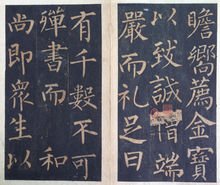 瞻嚮薦金寶
以致誠仰端
嚴而礼足日
有千數不可
殫書而 和
尚即衆生以